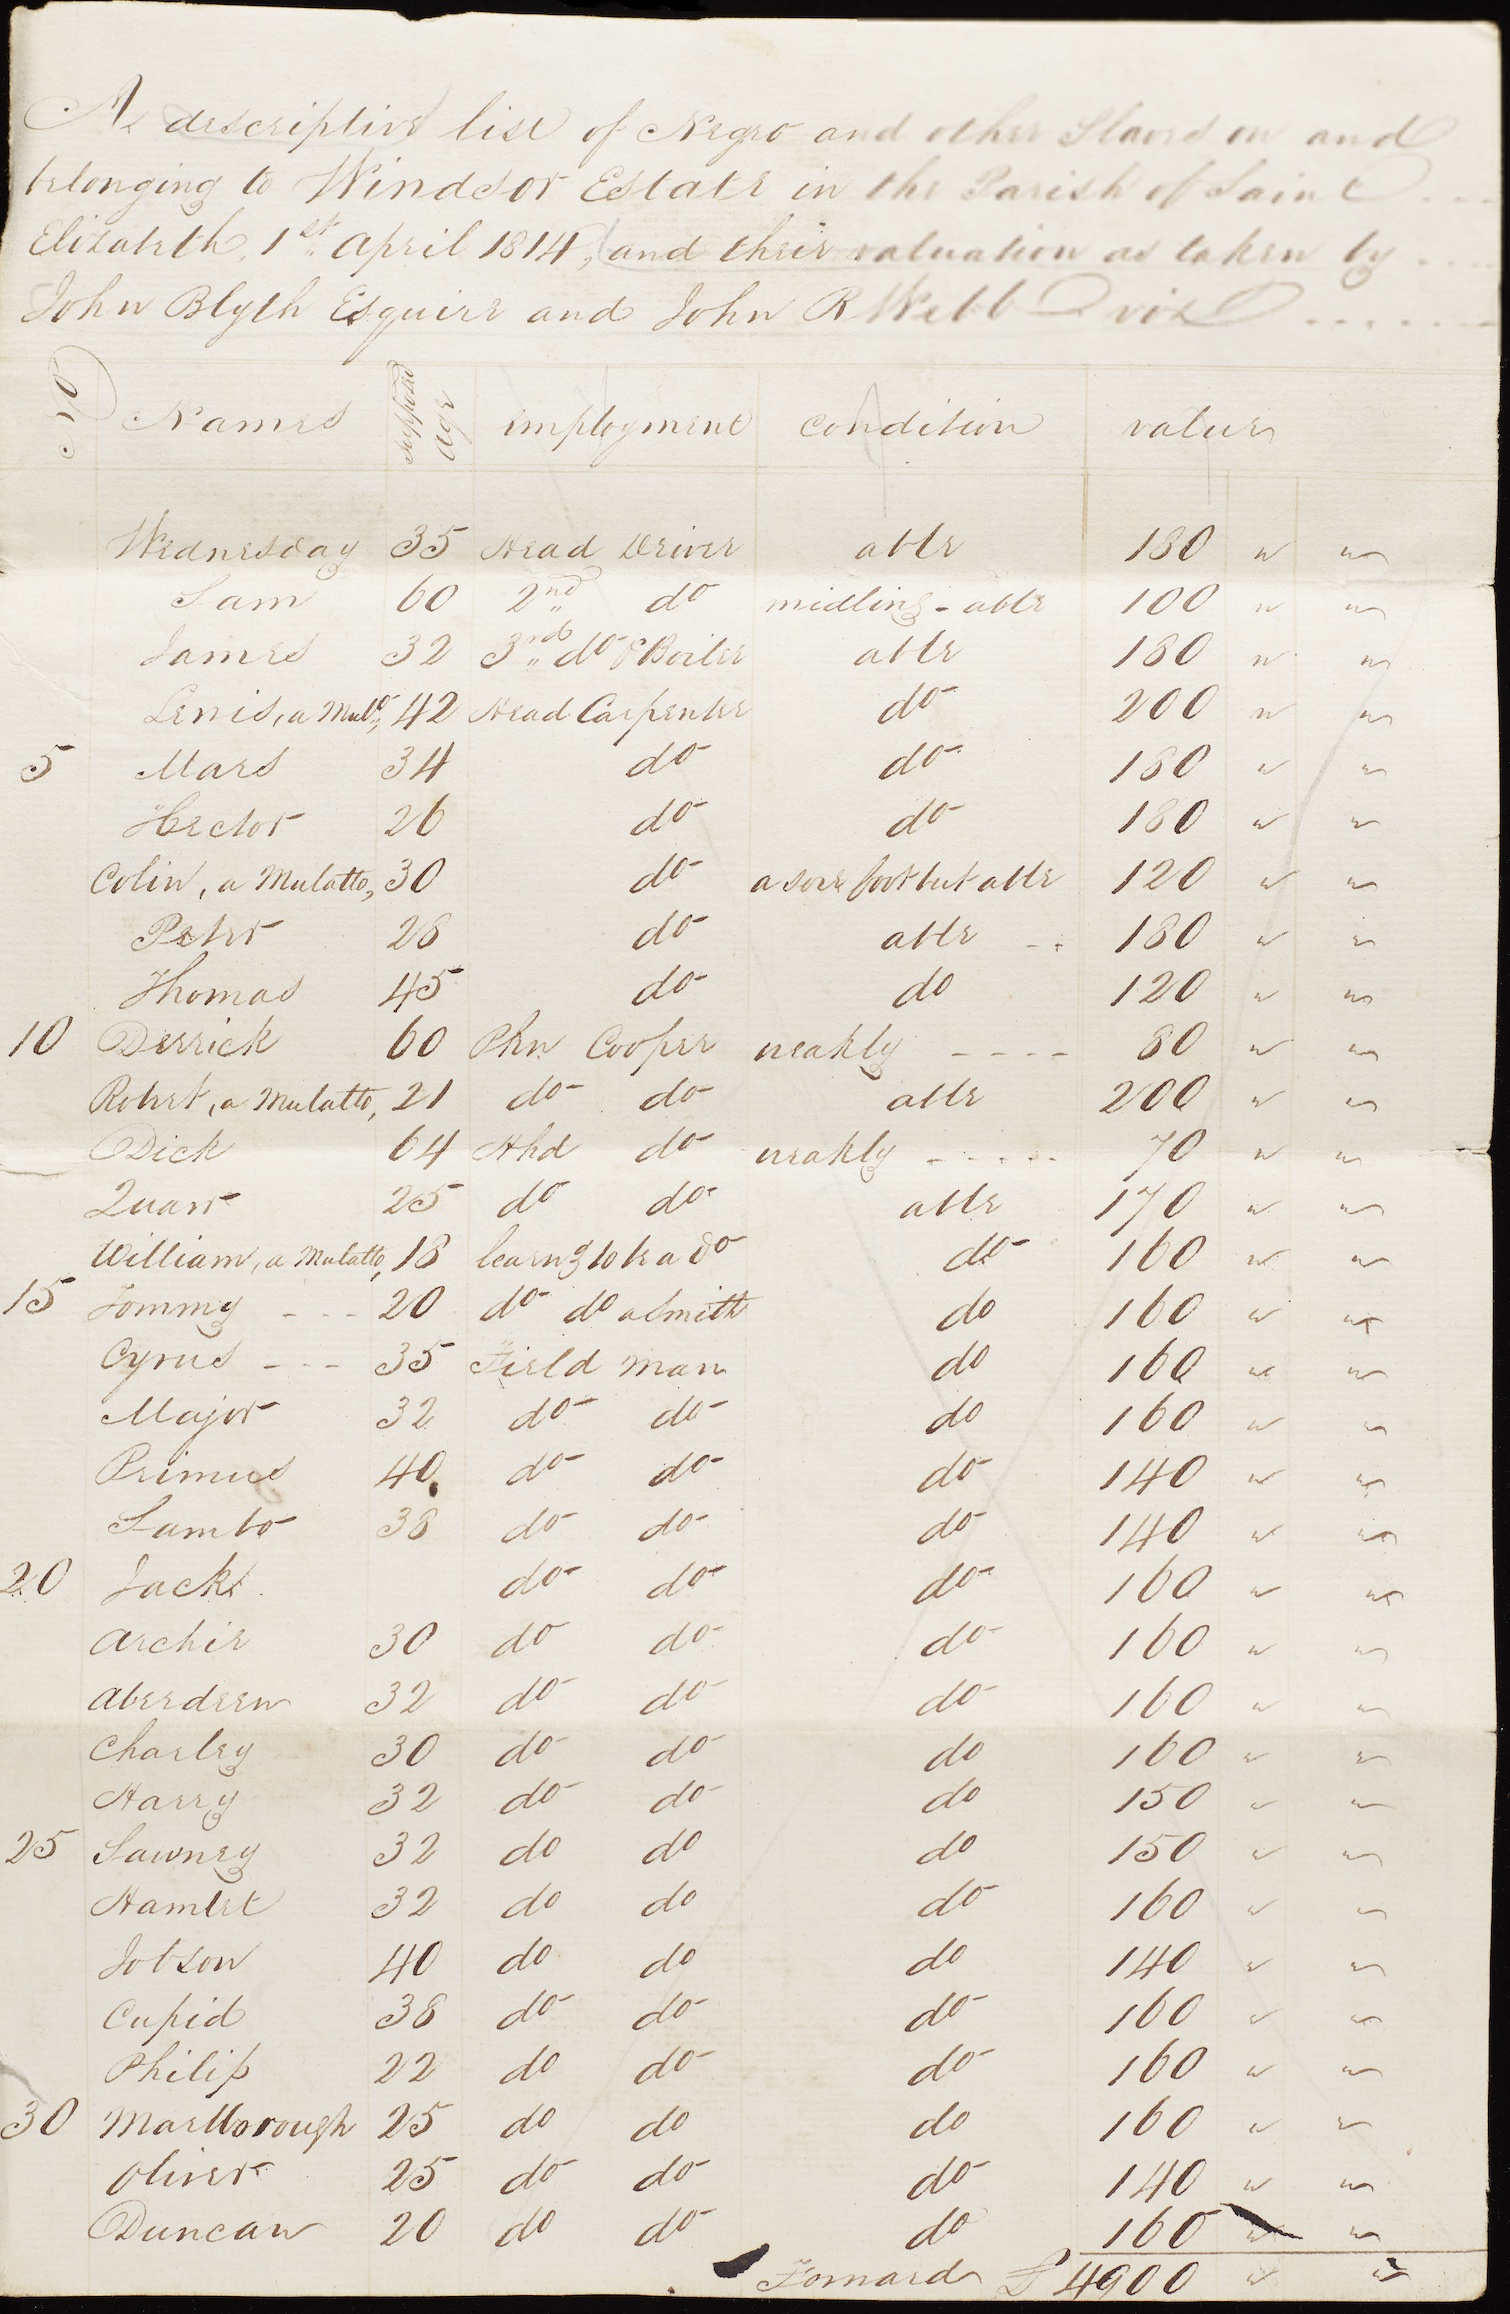 A descriptive list of Negro and other Slaves on and
belonging to Windsor Estate in the Parish of Saint
Elizabeth, 1st April 1814, and their valuation as taken by
John Blyth Esquire and John R Webb viz
No Names supposed Age employment condition value
Wednesday 35 Head Driver able 180 " "
Sam 60 2nd do midling - able 100 " "
James 32 3rd do & Boiler able 180 " "
Lewis, a Mulo, 42 Head Carpenter do 200 " "
5 Mars 34 do do 180 " "
Hector 26 do do 180 " "
Colin, a Mulatto, 30 do a sore foot but able 120 " "
Peter 28 do able 180 " "
Thomas 45 do do 120 " "
10 Derrick 60 Phn Cooper weakly 80 " "
Robert, a Mulatto, 21 do do able 200 " "
Dick 64 Hhd do weakly 70 " "
Quaw 25 do do able 170 " "
William, a Mulatto, 18 learng to be a do do 160 " "
15 Tommy 20 do do a Smith do 160 " "
Cyrus 35 Field man do 160 " "
Major 32 do do do 160 " "
Primus 40 do do do 140 " "
Sambo 38 do do do 140 " "
20 Jack do do do 160 " "
Archie 30 do do do 160 " "
Aberdeen 32 do do do 160 " "
Charley 30 do do do 160 " "
Harry 32 do do do 150 " "
25 Sawney 32 do do do 150 " "
Hamlet 32 do do do 160 " "
Jobson 40 do do do 140 " "
Cupid 38 do do do 160 " "
Philip 22 do do do 160 " "
30 Marlborough 25 do do do 160 " "
Oliver 25 do do do 140 " "
Duncan 20 do do do 160 " "
Forward £ 4900 " "